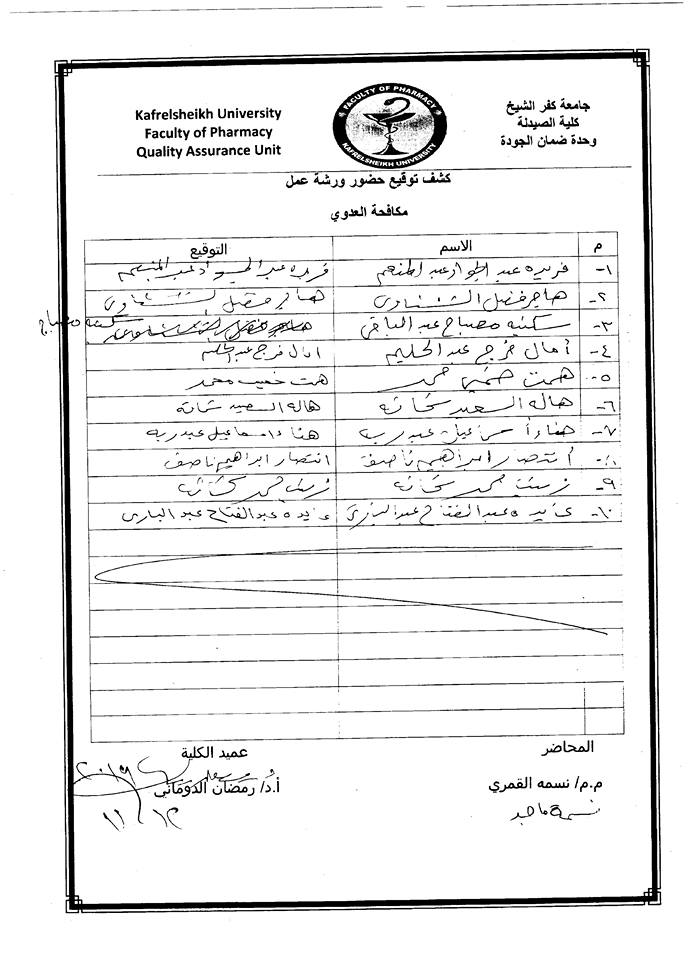 جامعة كفر الشيخ
كلية الصيدلة
وحدة ضمان الجودة
FACULTY OF PHARMACY
KAFRELSHEIKH UNIVERSITY
Kafrelsheikh University
Faculty of Pharmacy
Quality Assurance Unit
كشف توقيع حضور ورشة عمل
مكافحة العدوي
م الاسم التوقيع
١- فريده عبد الجواد عبد المنعم فريده عبد الجواد عبد المنعم
٢- هاجر فضل الشناوى هاجر فضل الشناوى
٣- سكينه مصباح عبد الباقى سكينه مصباح
٤- أمال فرج عبد الحليم امال فرج عبد الحليم
٥- همت محمد همت محمد
٦- هاله السعيد شحاته هاله السعيد شحاته
٧- هناء أسماعيل عبدربه هناء اسماعيل عبدربه
٨- أنتصار ابراهيم ناصف انتصار ابراهيم ناصف
٩- زينب محمد شحاته زينب محمد شحاته
١٠- عايده عبد الفتاح عبد البارى عايده عبد الفتاح عبد البارى
المحاضر عميد الكلية
م.م/ نسمه القمري أ.د/ رمضان الدوماني
نسمة ماجد
٢٠١٩
١١/١٢